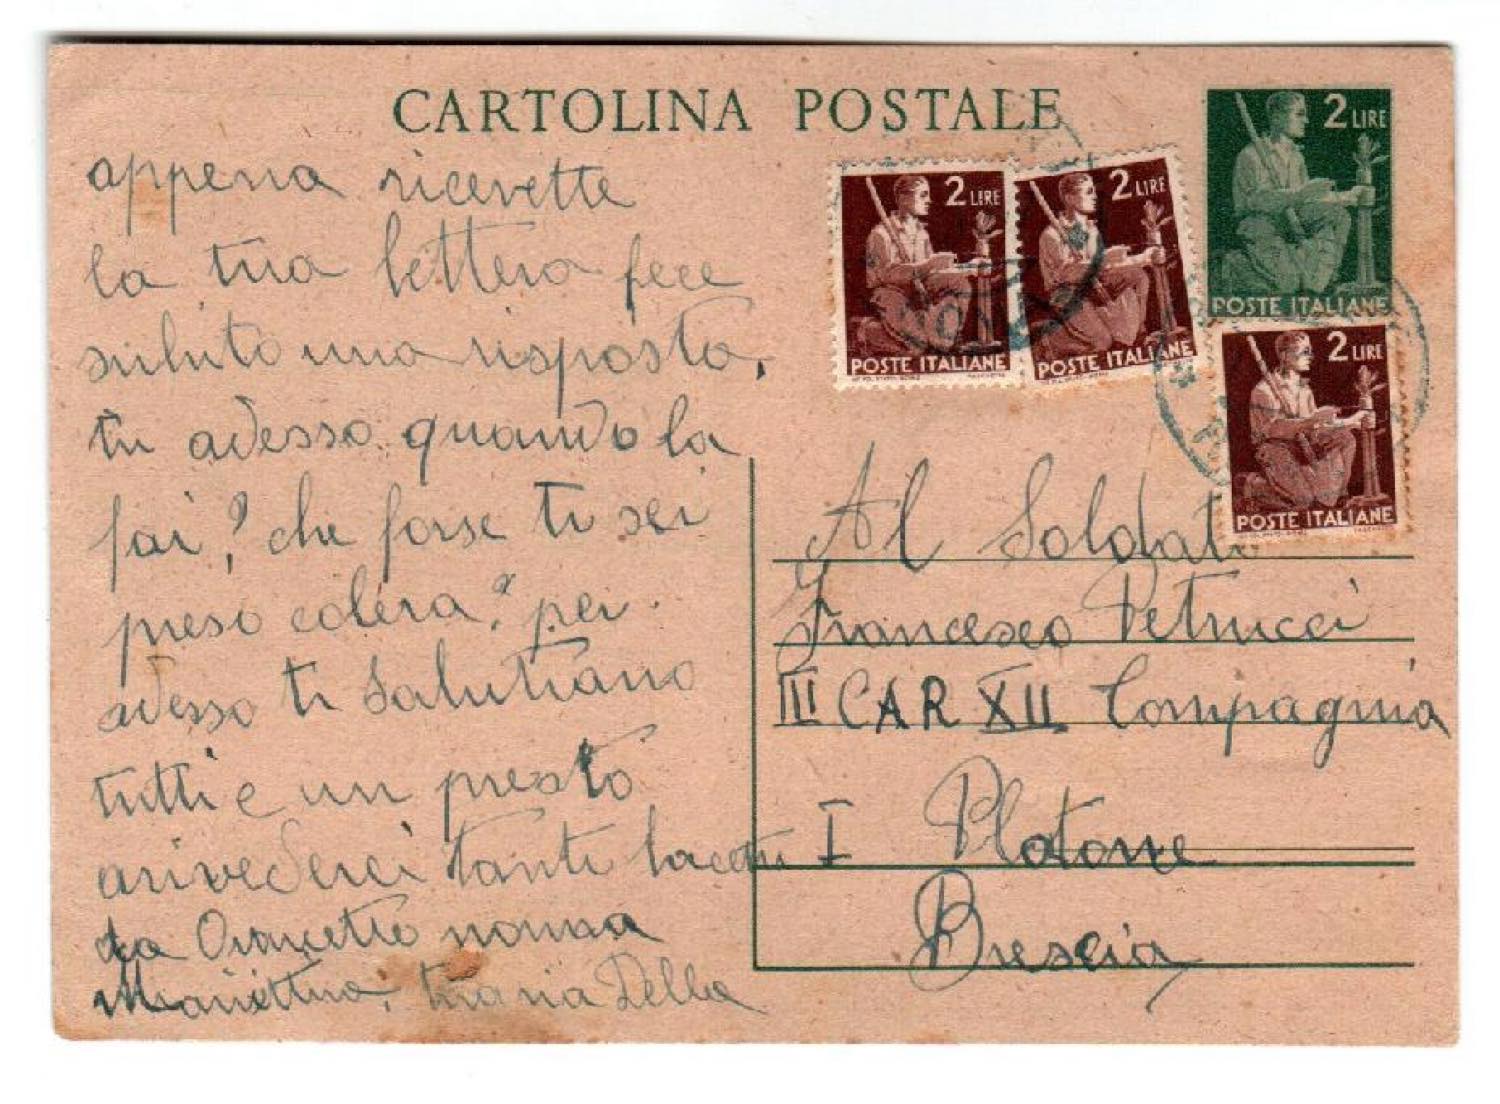 CARTOLINA POSTALE
2 LIRE
POSTE ITALIANE
2 LIRE
POSTE ITALIANE
2 LIRE
POSTE ITALIANE
2 LIRE
POSTE ITALIANE
appena ricevette
la tua lettera fece
subito una risposta,
tu adesso quando la
fai? che forse ti sei
preso colera? per
adesso ti salutiano
tutti e un presto
arivederci tanti baceti
da nonna
Mariettina, tua zia Della
Al Soldato
Francesco Petrucci
III CAR XII Compagnia
I Plotone
Brescia